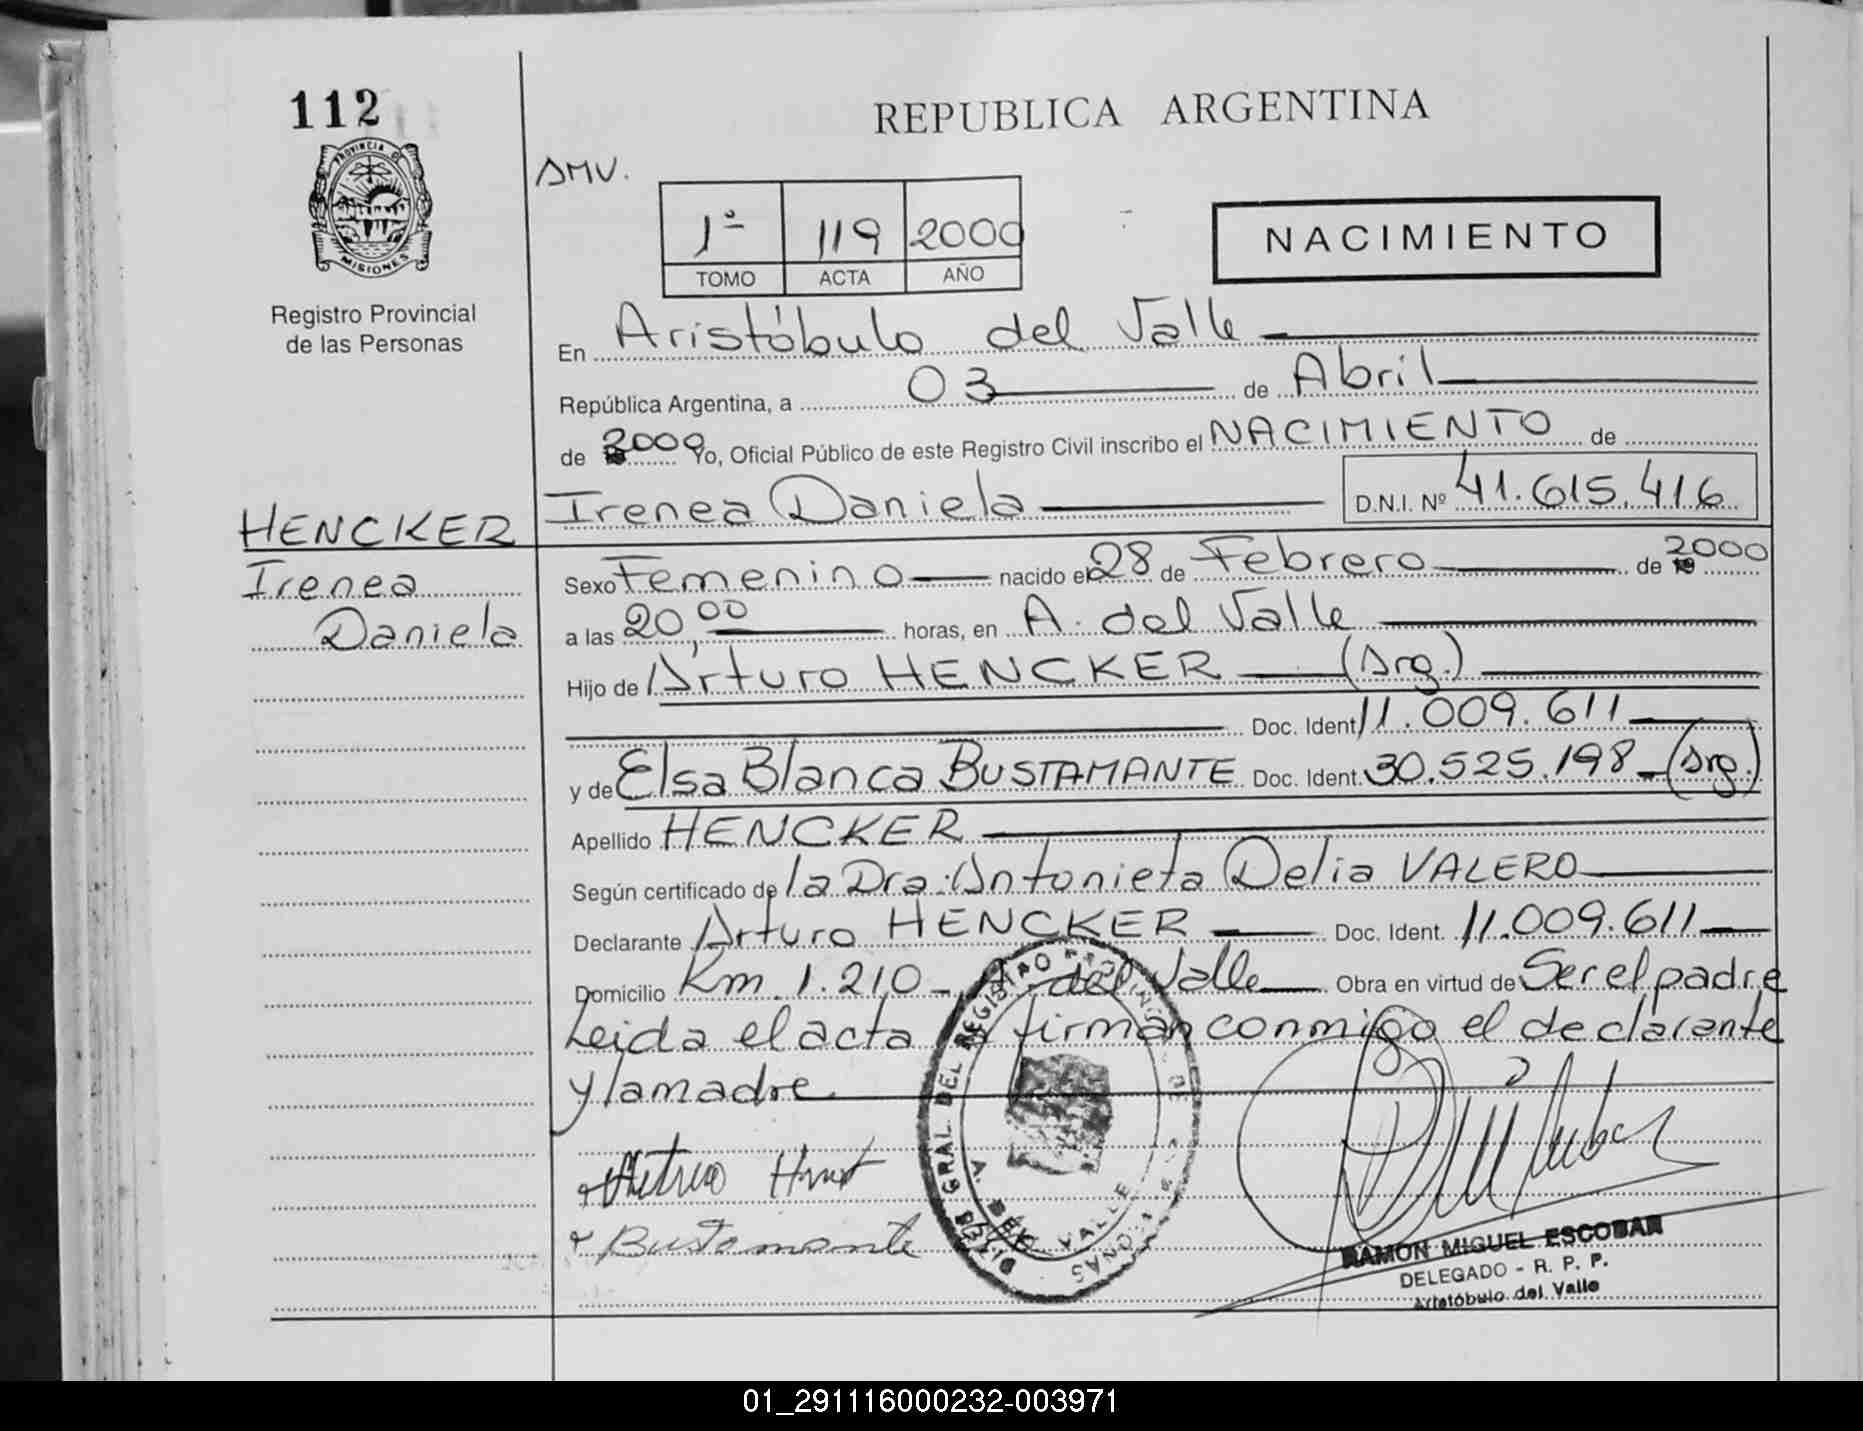 112
REPUBLICA ARGENTINA
PROVINCIA DE
MISIONES
Registro Provincial
de las Personas
AMV.
1º 119 2000
TOMO ACTA AÑO
NACIMIENTO
En Aristóbulo del Valle
República Argentina, a 03 de Abril
de 2000 Yo, Oficial Público de este Registro Civil inscribo el NACIMIENTO de
Irenea Daniela D.N.I. Nº 41.615.416
HENCKER
Irenea
Daniela
Sexo Femenino nacido el 28 de Febrero de 2000
a las 20,00 horas, en A. del Valle
Hijo de Arturo HENCKER (Arg.)
Doc. Ident. 11.009.611
y de Elsa Blanca BUSTAMANTE Doc. Ident. 30.525.198 (Arg.)
Apellido HENCKER
Según certificado de la Dra. Antonieta Delia VALERO
Declarante Arturo HENCKER Doc. Ident. 11.009.611
Domicilio Km. 1.210 - A. del Valle Obra en virtud de Ser el padre
Leida el acta firman conmigo el declarante
y la madre
Bustamante
GRAL. DEL REGISTRO
VALLE
RAMON MIGUEL ESCOBAR
DELEGADO - R. P. P.
Aristóbulo del Valle
01_291116000232-003971